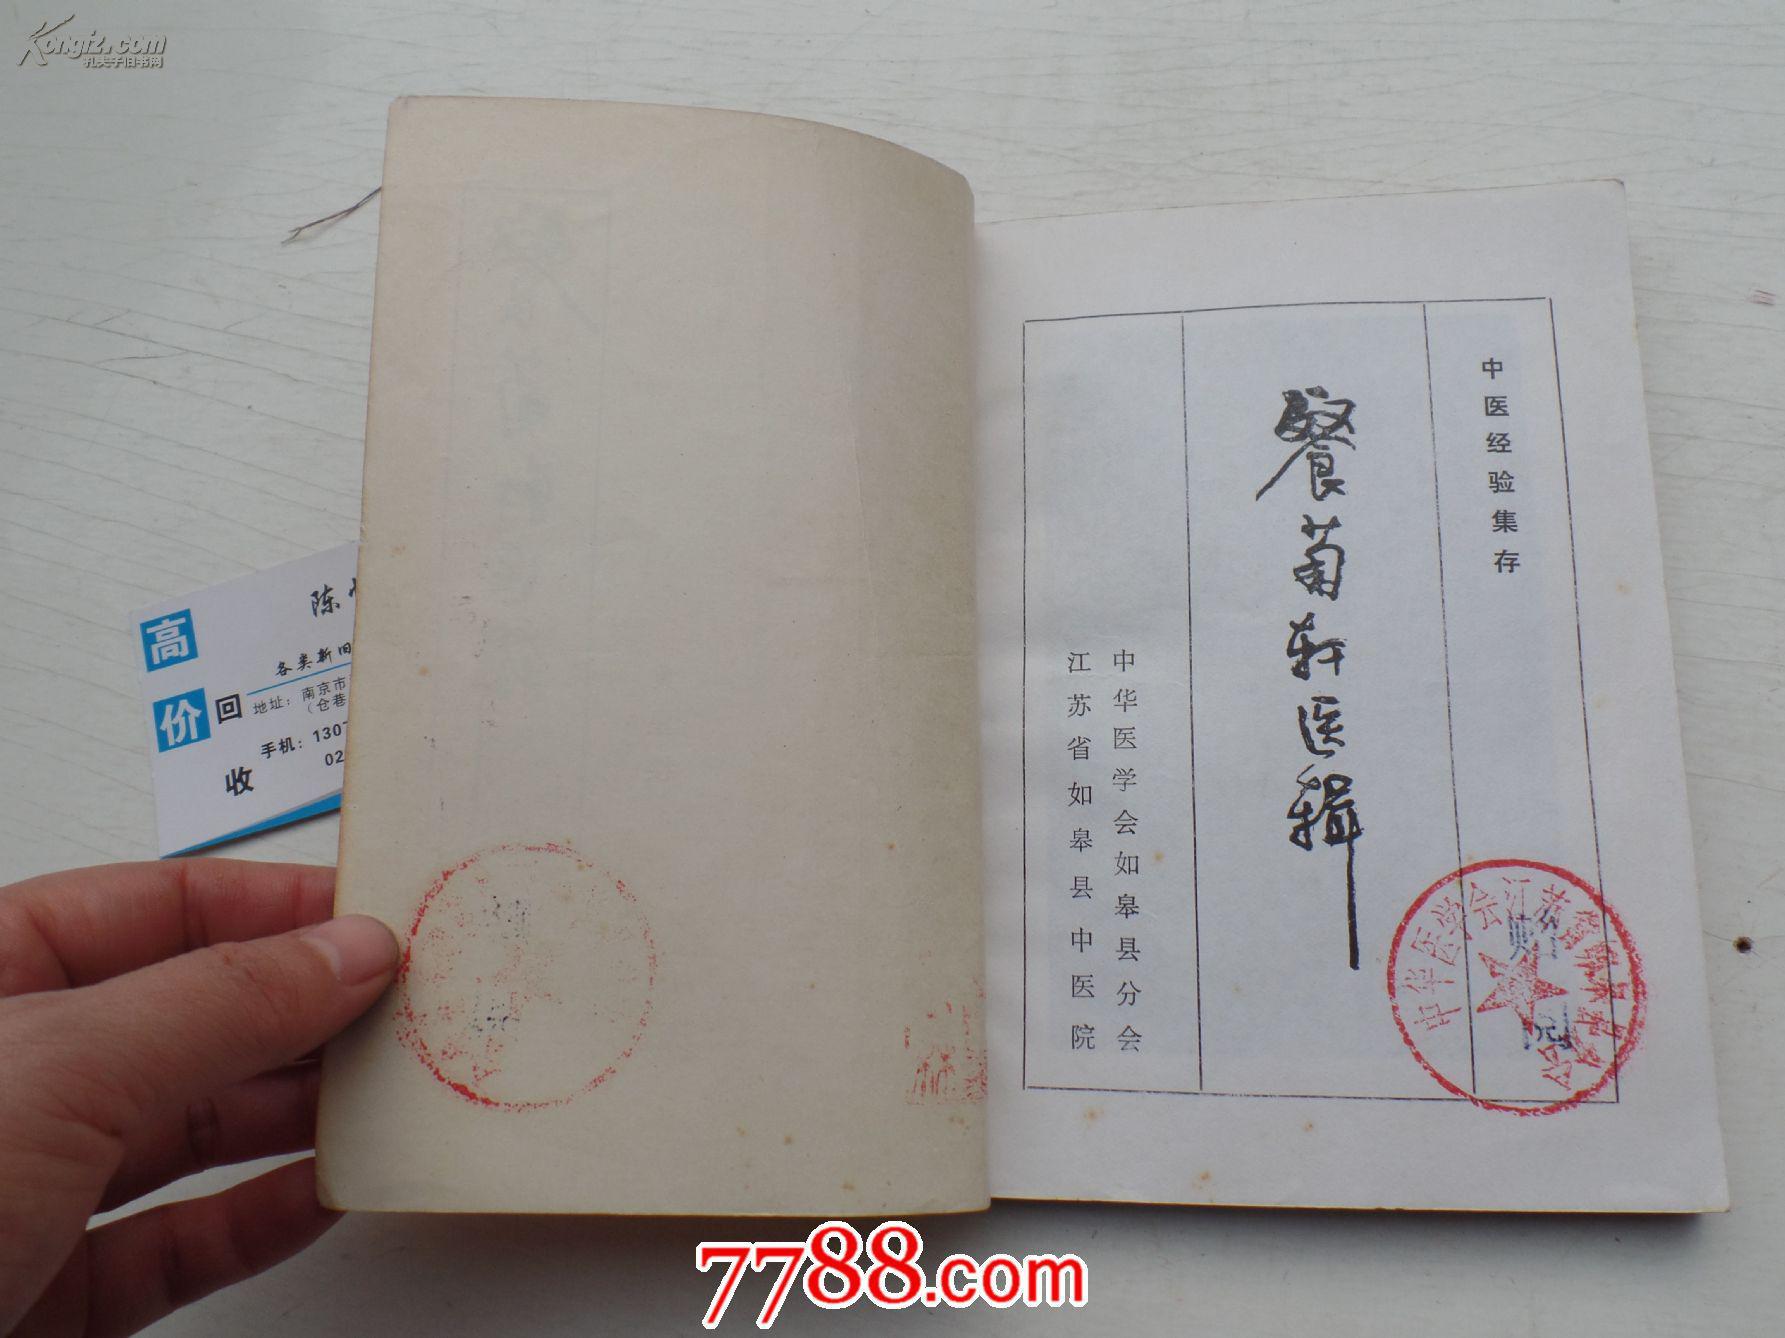 Kongfz.com
孔夫子旧书网
中医经验集存
餐菊轩医辑
中华医学会如皋县分会
江苏省如皋县中医院
中华医学会江苏
高价
回收
陈
各类新旧
地址：南京市
（仓巷
手机：1307
02
7788.com